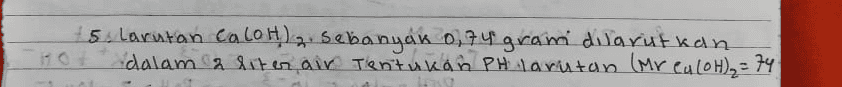 5. Larutan Ca(OH)₂. sebanyak 0,74 gram dilarutkan
dalam 2 liter air Tentukan PH larutan (Mr Ca(OH)₂ = 74